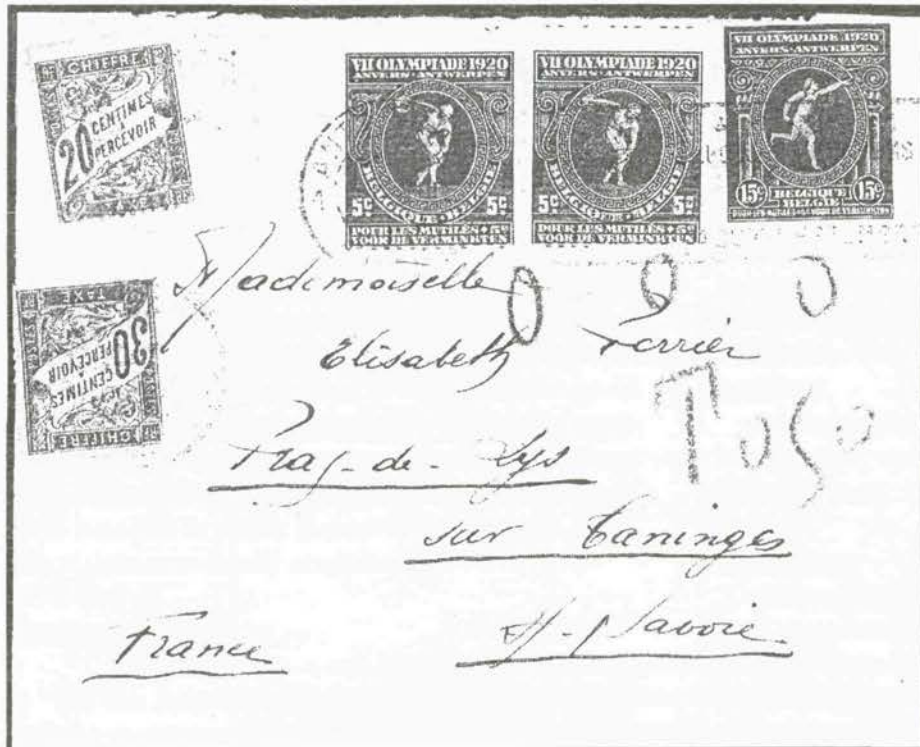 CHIFFRE
20 CENTIMES
PERCEVOIR
TAXE
VII OLYMPIADE 1920
ANVERS·ANTWERPEN
5c 5c
BELGIQUE·BELGIË
POUR LES MUTILÉS + 5c
VOOR DE VERMINKTEN
VII OLYMPIADE 1920
ANVERS·ANTWERPEN
5c 5c
BELGIQUE·BELGIË
POUR LES MUTILÉS + 5c
VOOR DE VERMINKTEN
VII OLYMPIADE 1920
ANVERS·ANTWERPEN
15c 15c
BELGIQUE
BELGIË
CHIFFRE
30 CENTIMES
PERCEVOIR
TAXE
Mademoiselle
0 0 0
Elisabeth Perrier
T 050
Praz-de-Lys
sur Taninges
Hte-Savoie
France